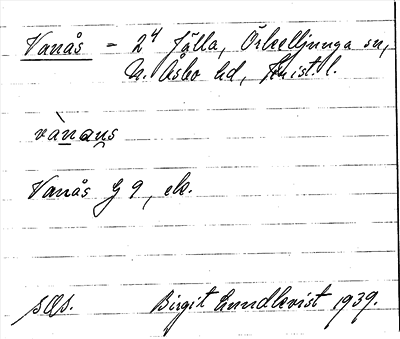 Vanås – 2⁴ Jälla, Örkelljunga sn,
N. Åsbo hd, Krist. l.
vànaņs
Vanås G 9, ek.
sOs. Birgit Lundkvist 1939.